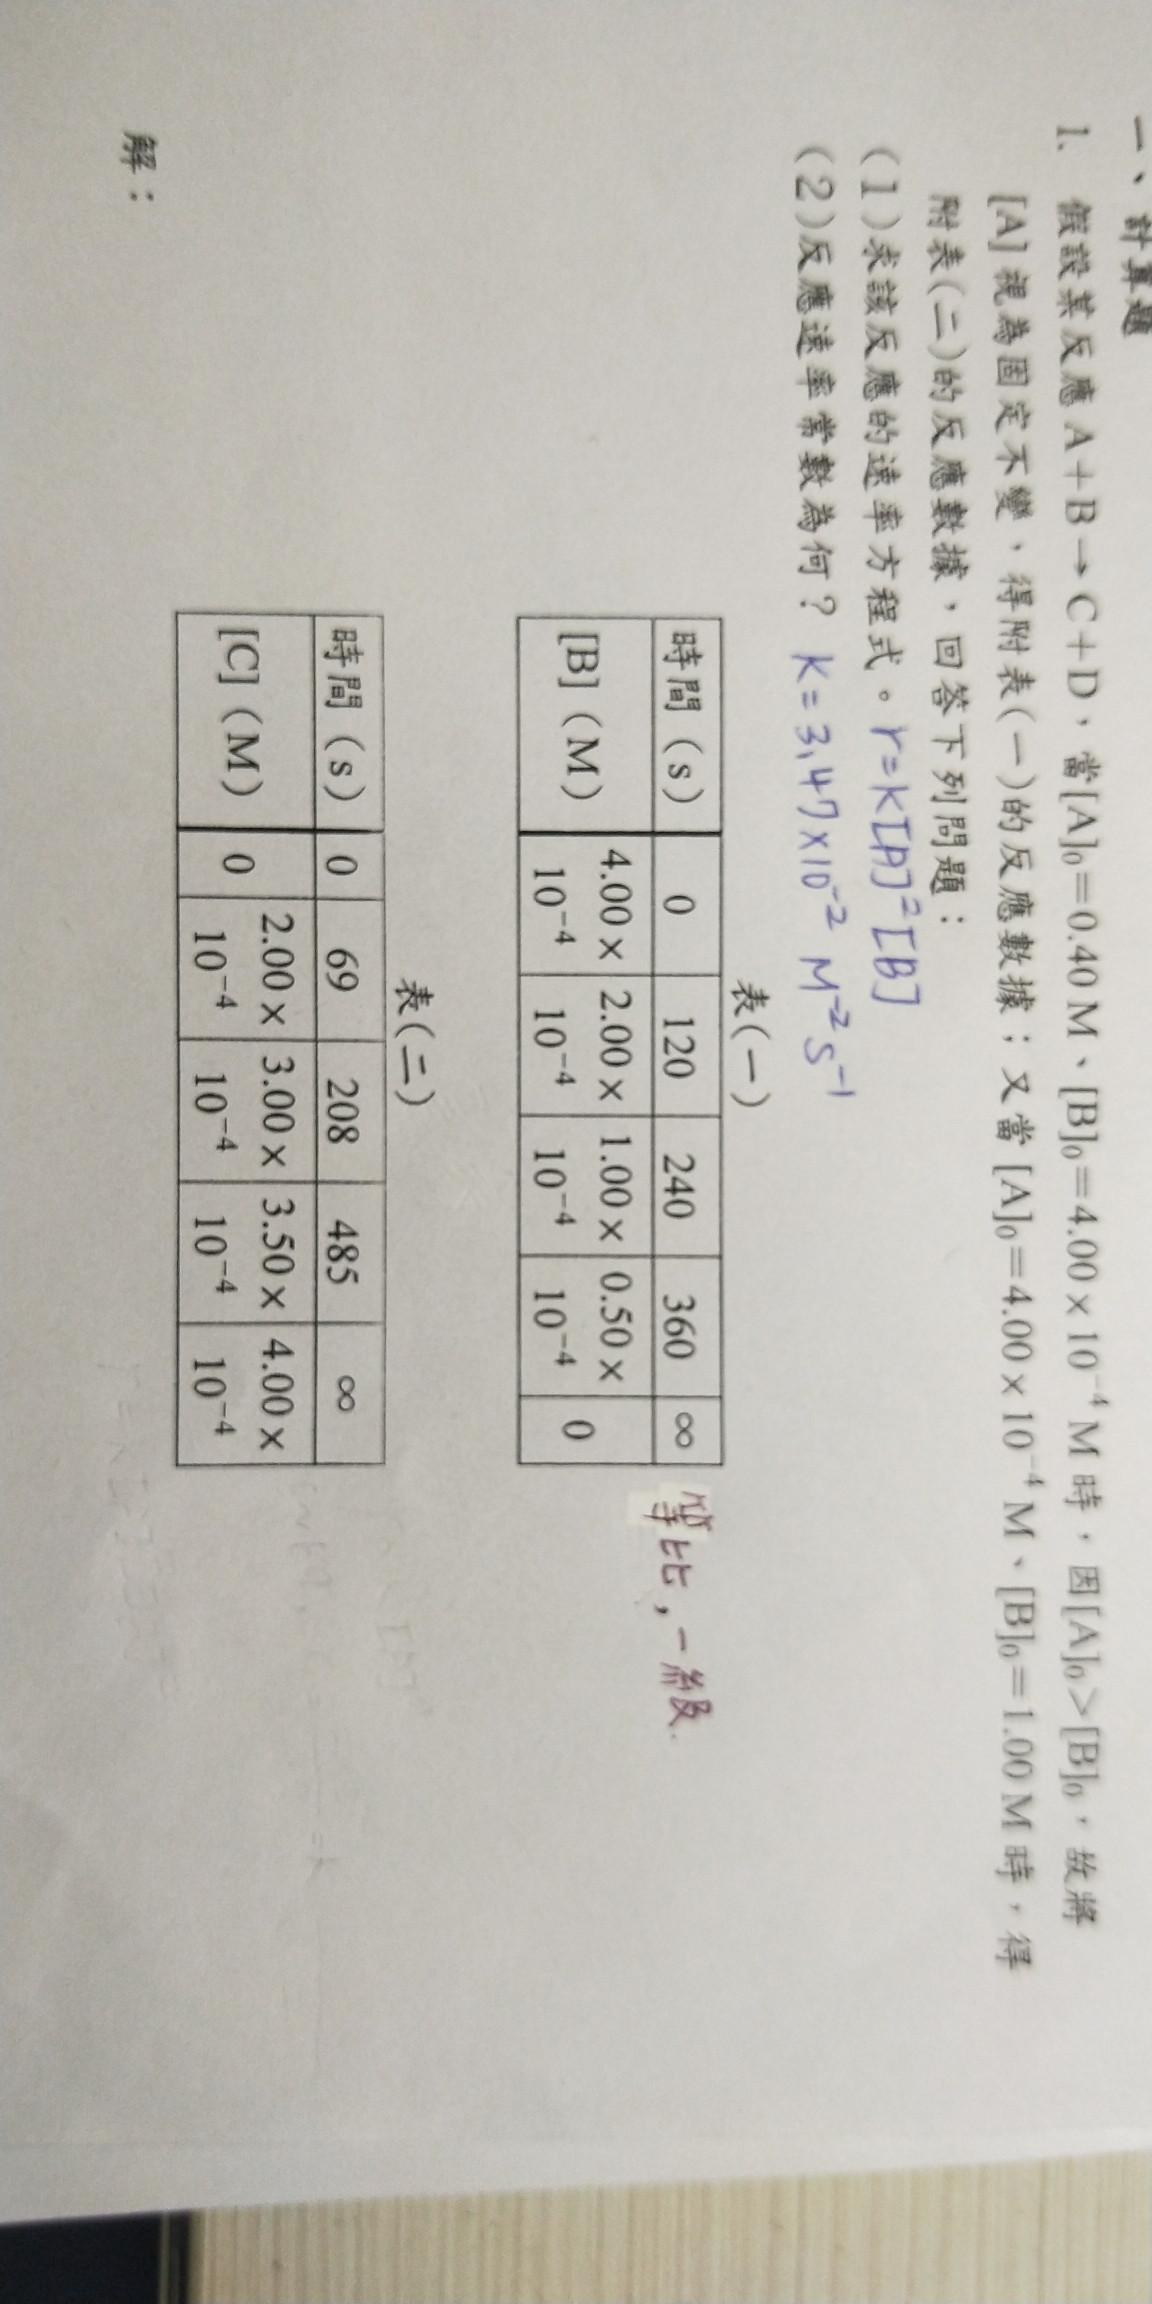 一、計算題
1. 假設某反應 A＋B→C＋D，當[A]₀＝0.40 M、[B]₀＝4.00 × 10⁻⁴ M 時，因[A]₀＞[B]₀，故將
[A] 視為固定不變，得附表(一)的反應數據；又當 [A]₀＝4.00 × 10⁻⁴ M、[B]₀＝1.00 M 時，得
附表(二)的反應數據，回答下列問題：
(1)求該反應的速率方程式。r=K[A]²[B]
(2)反應速率常數為何？ K=3.47×10⁻² M⁻²S⁻¹
表(一)
時間（s） 0 120 240 360 ∞
[B]（M） 4.00 × 10⁻⁴ 2.00 × 10⁻⁴ 1.00 × 10⁻⁴ 0.50 × 10⁻⁴ 0
等比，一級.
表(二)
時間（s） 0 69 208 485 ∞
[C]（M） 0 2.00 × 10⁻⁴ 3.00 × 10⁻⁴ 3.50 × 10⁻⁴ 4.00 × 10⁻⁴
解：